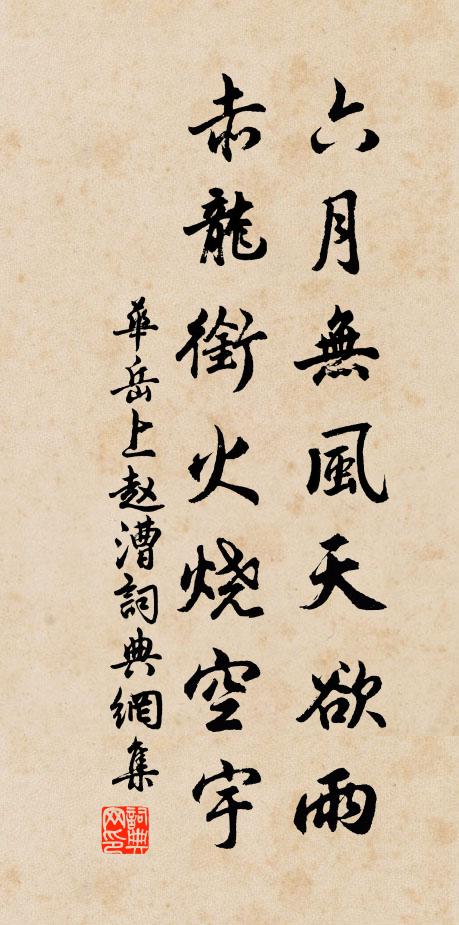 六月無風天欲雨
赤龍銜火烧空宇
華岳上赵漕詞典網集
詞典網印